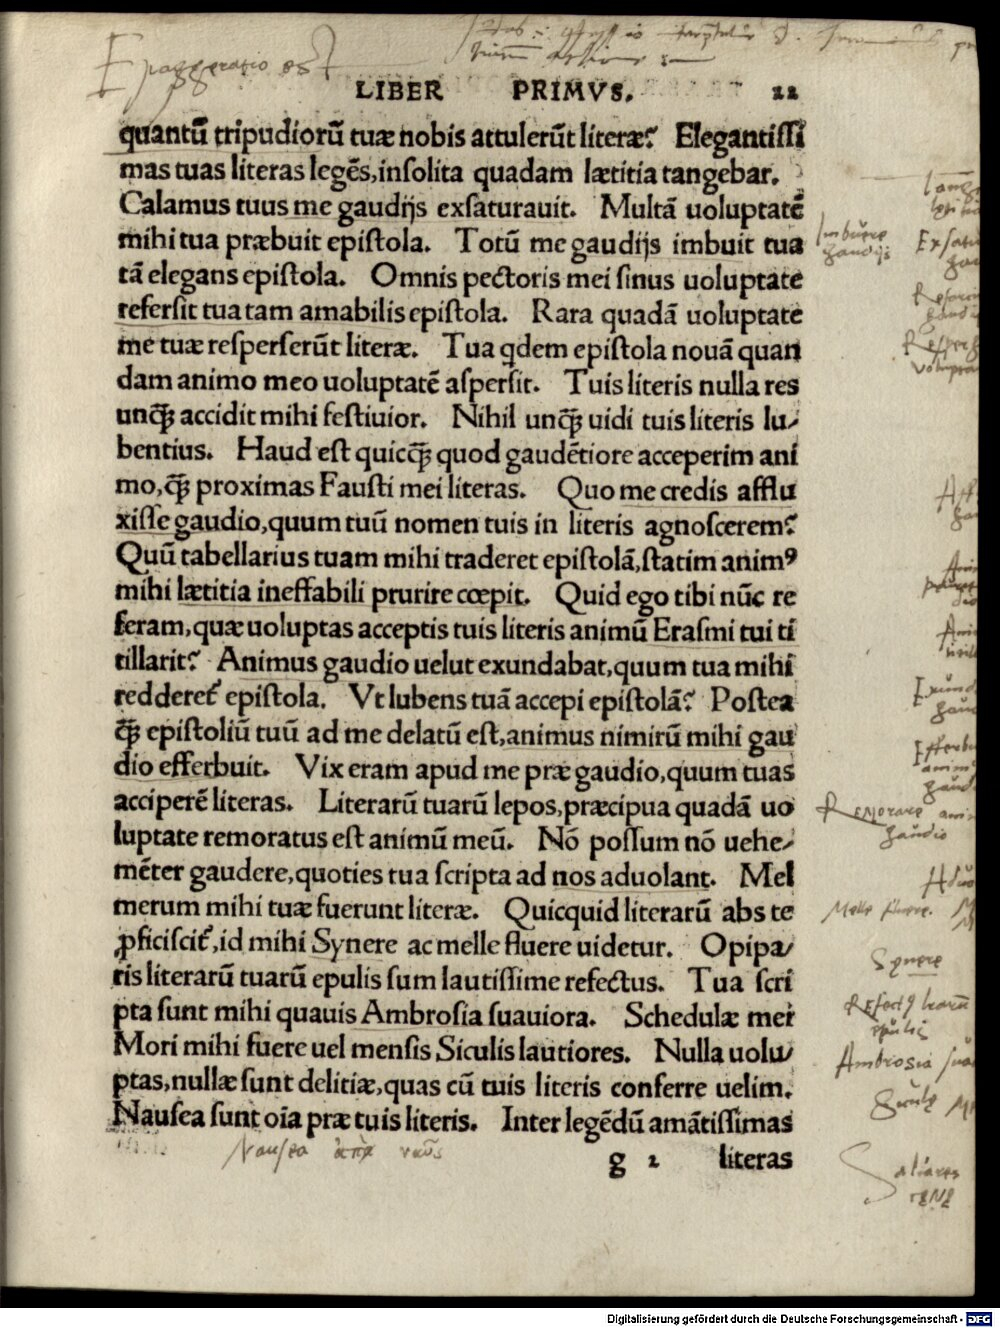 LIBER PRIMVS. 22
quantū tripudiorū tuæ nobis attulerūt literæ? Elegantiſſi
mas tuas literas legēs,inſolita quadam lætitia tangebar.
Calamus tuus me gaudijs exſaturauit. Multā uoluptatē
mihi tua præbuit epiſtola. Totū me gaudijs imbuit tua
tā elegans epiſtola. Omnis pectoris mei ſinus uoluptate
referſit tua tam amabilis epiſtola. Rara quadā uoluptate
me tuæ reſperſerūt literæ. Tua qdem epiſtola nouā quan
dam animo meo uoluptatē aſperſit. Tuis literis nulla res
unꝗ̃ accidit mihi feſtiuior. Nihil unꝗ̃ uidi tuis literis lu⸗
bentius. Haud eſt quicꝗ̃ quod gaudētiore acceperim ani
mo,ꝗ̃ proximas Fauſti mei literas. Quo me credis afflu
xiſſe gaudio,quum tuū nomen tuis in literis agnoſcerem?
Quū tabellarius tuam mihi traderet epiſtolā,ſtatim animꝰ
mihi lætitia ineffabili prurire cœpit. Quid ego tibi nūc re
feram,quæ uoluptas acceptis tuis literis animū Eraſmi tui ti
tillarit? Animus gaudio uelut exundabat,quum tua mihi
reddereť epiſtola. Vt lubens tuā accepi epiſtolā? Poſtea
ꝗ̃ epiſtoliū tuū ad me delatū eſt,animus nimirū mihi gau
dio efferbuit. Vix eram apud me præ gaudio,quum tuas
acciperē literas. Literarū tuarū lepos,præcipua quadā uo
luptate remoratus eſt animū meū. Nō poſſum nō uehe⸗
mēter gaudere,quoties tua ſcripta ad nos aduolant. Mel
merum mihi tuæ fuerunt literæ. Quicquid literarū abs te
ꝓficiſciť,id mihi Synere ac melle fluere uidetur. Opipa⸗
ris literarū tuarū epulis ſum lautiſſime refectus. Tua ſcri
pta ſunt mihi quauis Ambroſia ſuauiora. Schedulæ mei
Mori mihi fuere uel menſis Siculis lautiores. Nulla uolu⸗
ptas,nullæ ſunt delitiæ,quas cū tuis literis conferre uelim.
Nauſea ſunt oīa præ tuis literis. Inter legēdū amātiſſimas
g 2 literas
Imbuere
gaudijs
Melle fluere.
Synere
Ambrosia
Nausea
Digitalisierung gefördert durch die Deutsche Forschungsgemeinschaft - DFG